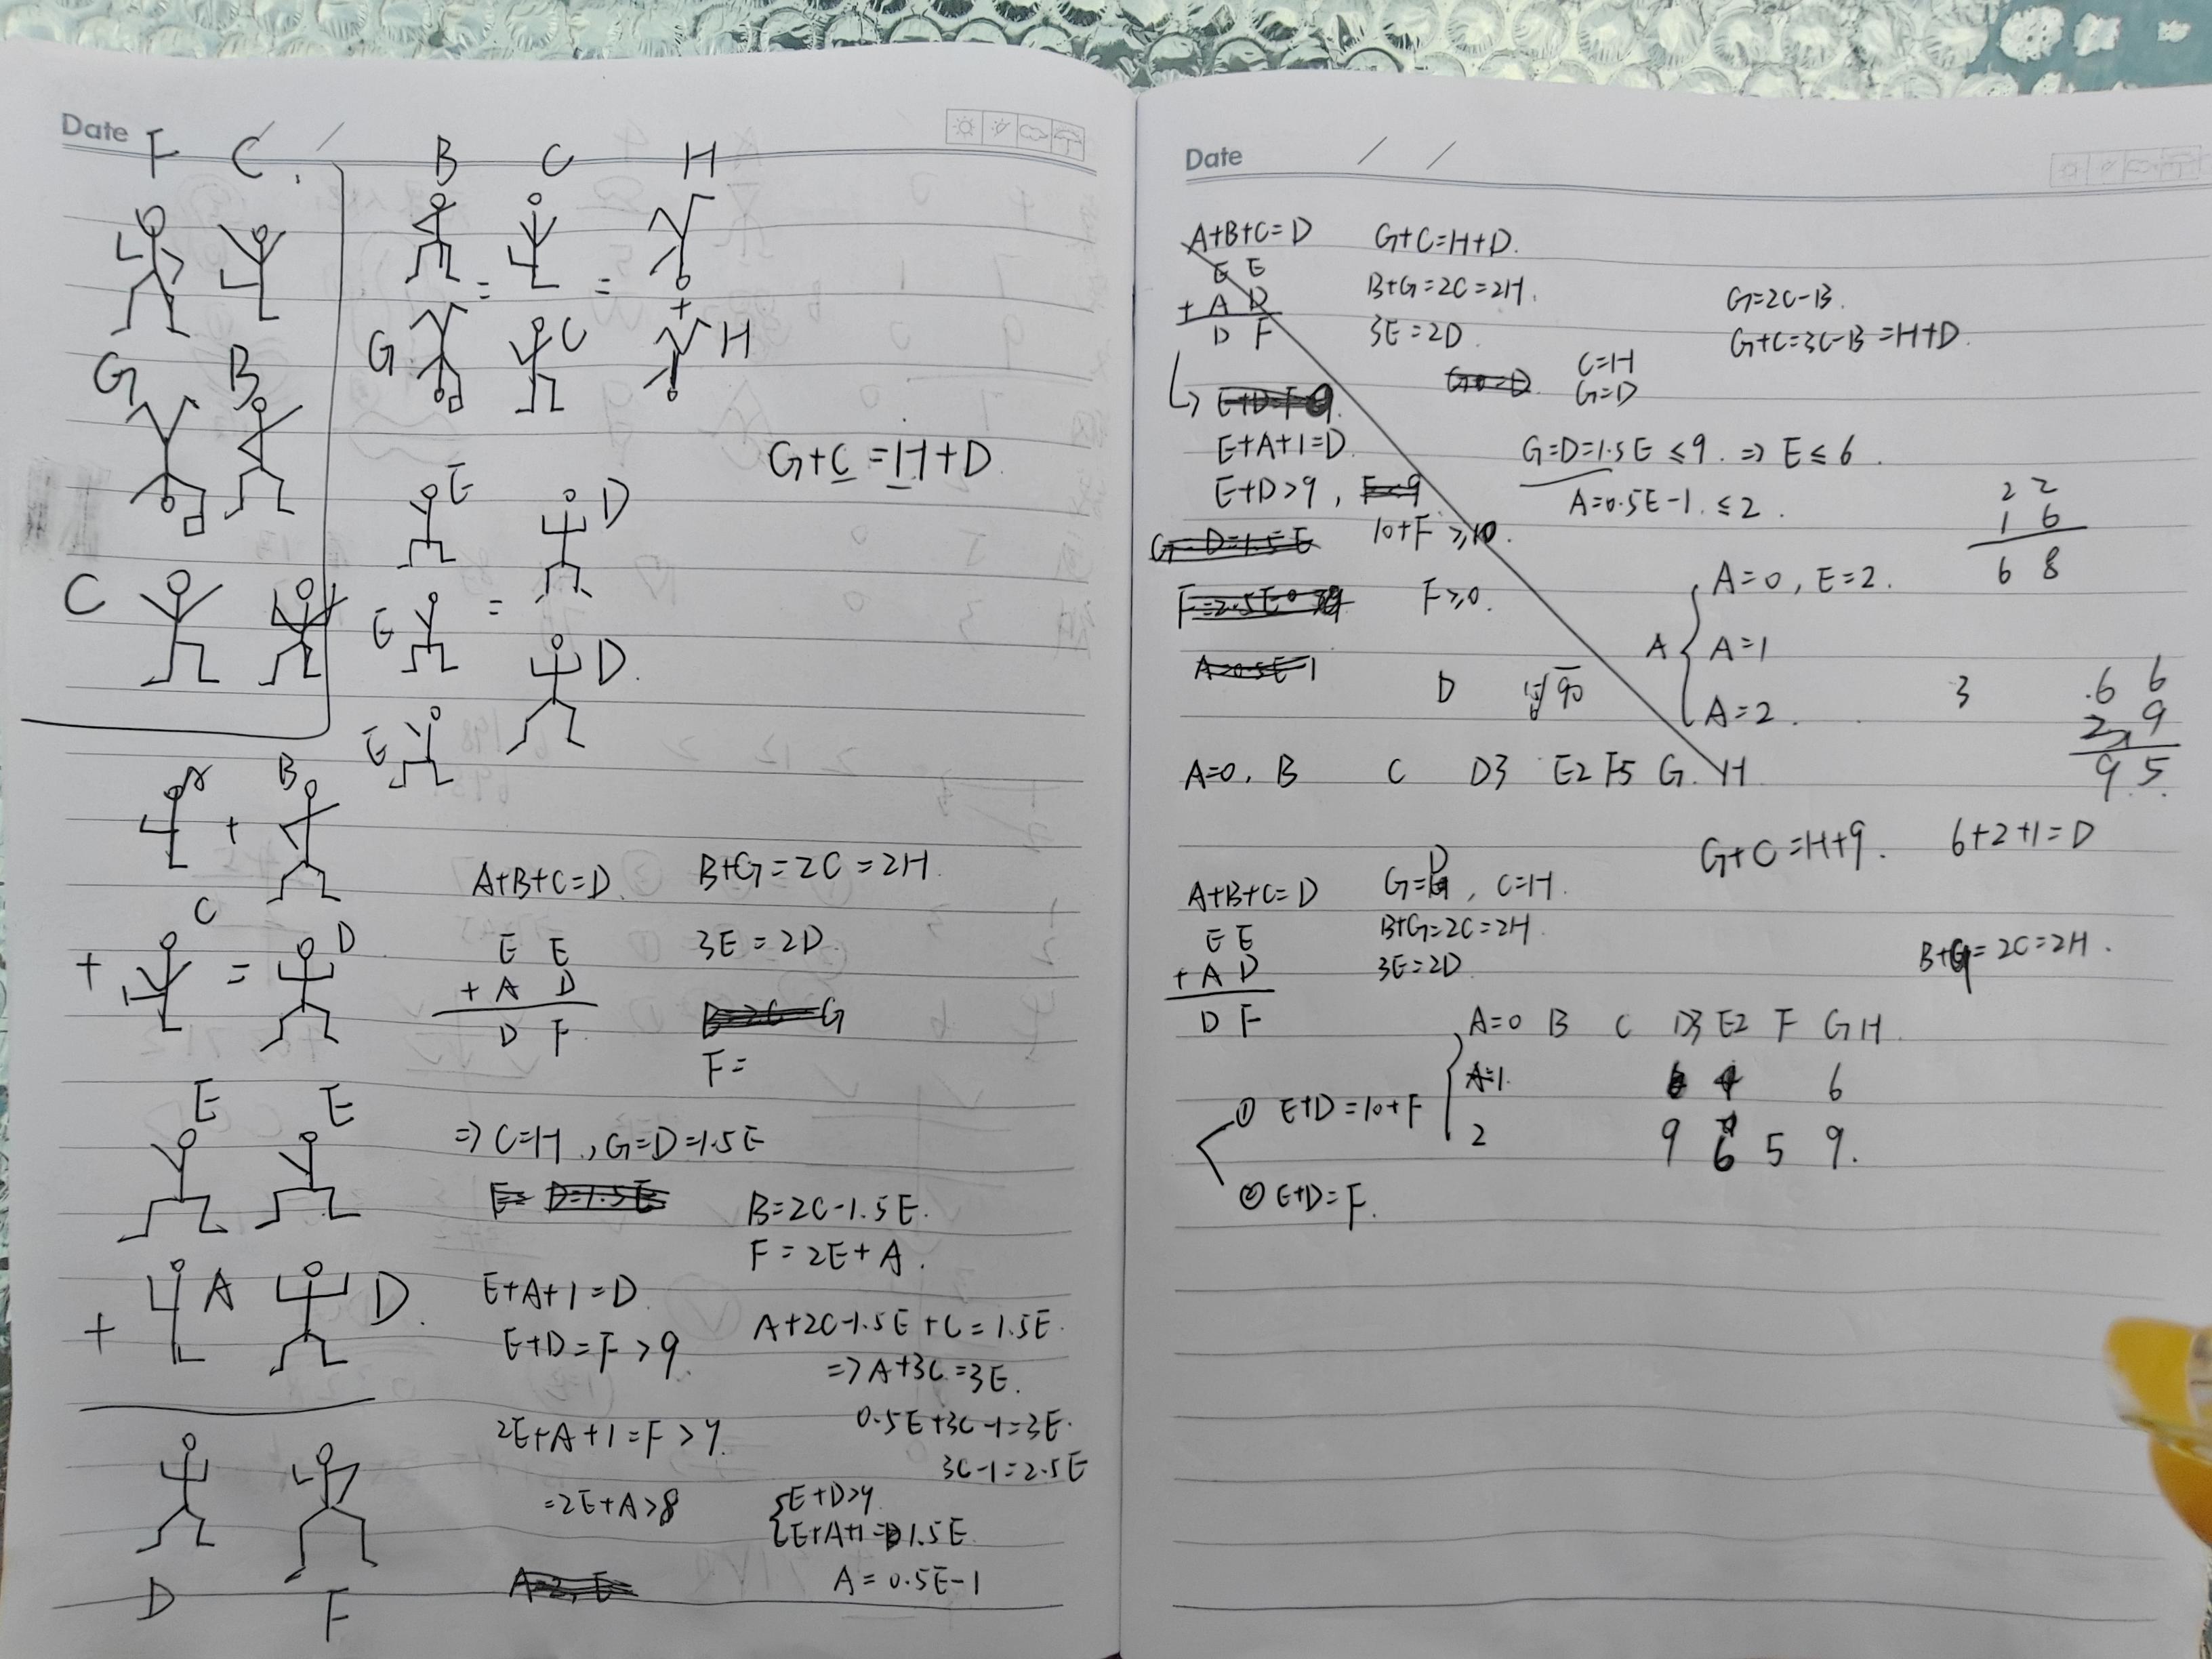 Date
F C
B C H
= =
+
G C H
G B
G+C=H+D
E D
E = D
C
E
A + B
A+B+C=D B+G=2C=2H
+ C = D
E E
+ A D
D F
3E=2D
F=
E E
=> C=H, G=D=1.5E
B=2C-1.5E
F=2E+A
+ A D
E+A+1=D
E+D=F>9
A+2C-1.5E+C=1.5E
=>A+3C=3E
0.5E+3C-1=3E
3C-1=2.5E
2E+A+1=F>9
=2E+A>8
E+D>9
E+A+1=1.5E
A=0.5E-1
D F
Date
A+B+C=D G+C=H+D.
E E
+ A D
D F
B+G=2C=2H.
3E=2D
G=2C-B.
G+C=3C-B=H+D.
C=H
G=D
E+A+1=D.
E+D>9,
10+F≥10.
G=D=1.5E≤9. => E≤6.
A=0.5E-1.≤2.
2 2
1 6
6 8
F≥0.
A
A=0, E=2.
A=1
A=2.
D
3
6 6
2 9
9 5.
A=0, B C D3 E2 F5 G. H
G+C=H+9. 6+2+1=D
A+B+C=D G=D, C=H.
E E
+ A D
D F
B+G=2C=2H.
3E=2D
B+G=2C=2H.
A=0 B C D3 E2 F G H.
① E+D=10+F
A=1. 6
2 9 6 5 9.
② E+D=F.